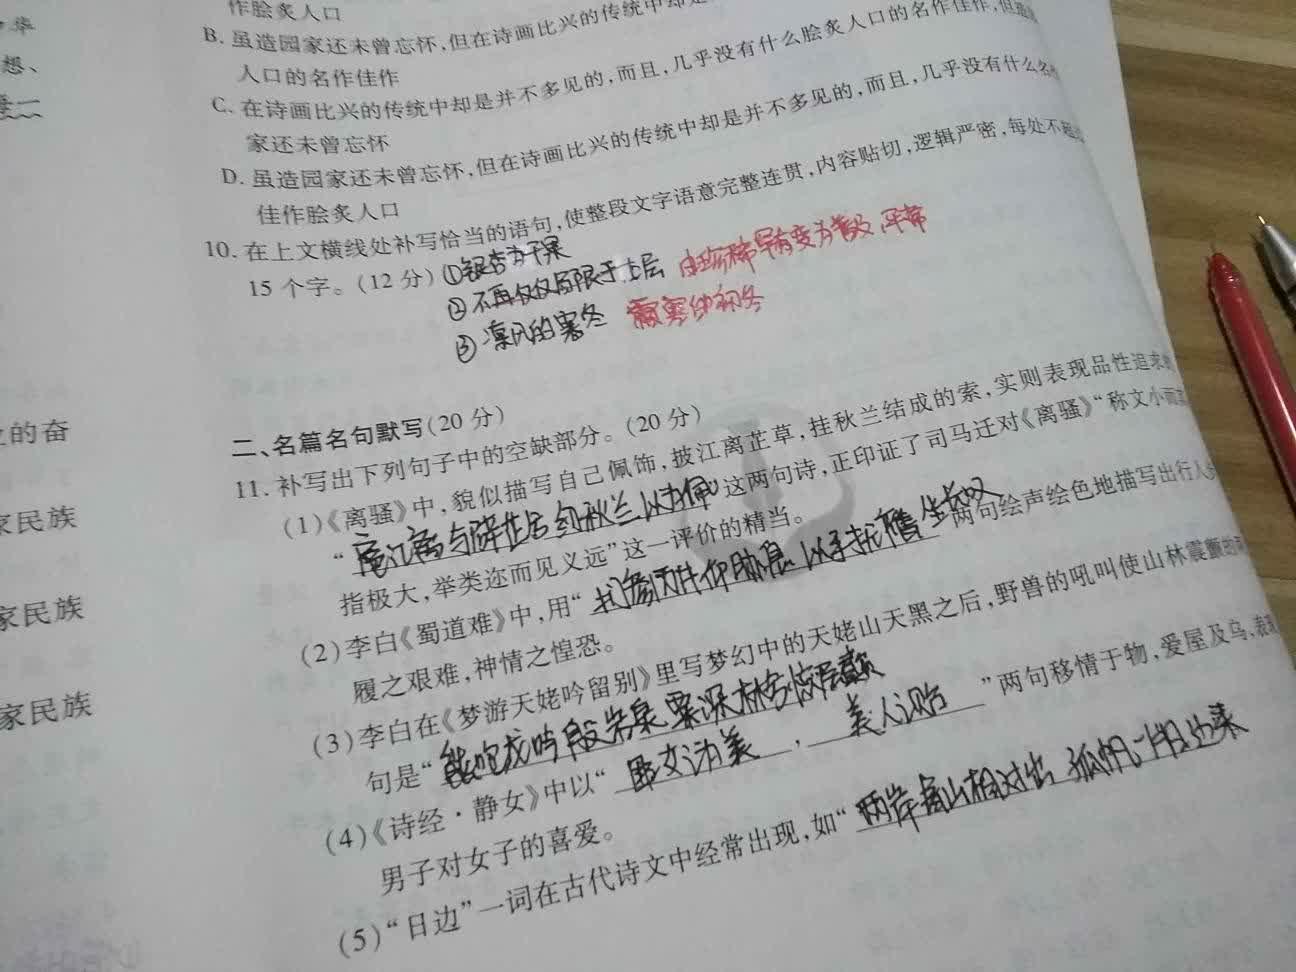 华
想、
作脍炙人口
B. 虽造园家还未曾忘怀,但在诗画比兴的传统中却是
人口的名作佳作
C. 在诗画比兴的传统中却是并不多见的,而且,几乎没有什么脍炙人口的名作佳作,但造园
家还未曾忘怀
D. 虽造园家还未曾忘怀,但在诗画比兴的传统中却是并不多见的,而且,几乎没有什么名作
佳作脍炙人口
10. 在上文横线处补写恰当的语句,使整段文字语意完整连贯,内容贴切,逻辑严密,每处不超过
15 个字。(12 分) ①银杏为干果
②不再仅仅局限于上层 由珍稀罕有变为普及、平常
③凛冽的寒冬 初冬
二、名篇名句默写(20 分)
11. 补写出下列句子中的空缺部分。(20 分)
(1)《离骚》中,貌似描写自己佩饰,披江离芷草,挂秋兰结成的索,实则表现品性追求的
“扈江离与辟芷兮 纫秋兰以为佩”这两句诗,正印证了司马迁对《离骚》“称文小而其
指极大,举类迩而见义远”这一评价的精当。
(2)李白《蜀道难》中,用“扪参历井仰胁息 以手抚膺坐长叹”两句绘声绘色地描写出行人步
履之艰难,神情之惶恐。
(3)李白在《梦游天姥吟留别》里写梦幻中的天姥山天黑之后,野兽的吼叫使山林震颤的两
句是“熊咆龙吟殷岩泉 栗深林兮惊层巅
(4)《诗经·静女》中以“匪女之为美,美人之贻”两句移情于物,爱屋及乌,表现
男子对女子的喜爱。
(5)“日边”一词在古代诗文中经常出现,如“两岸青山相对出 孤帆一片日边来
立的奋
家民族
家民族
家民族